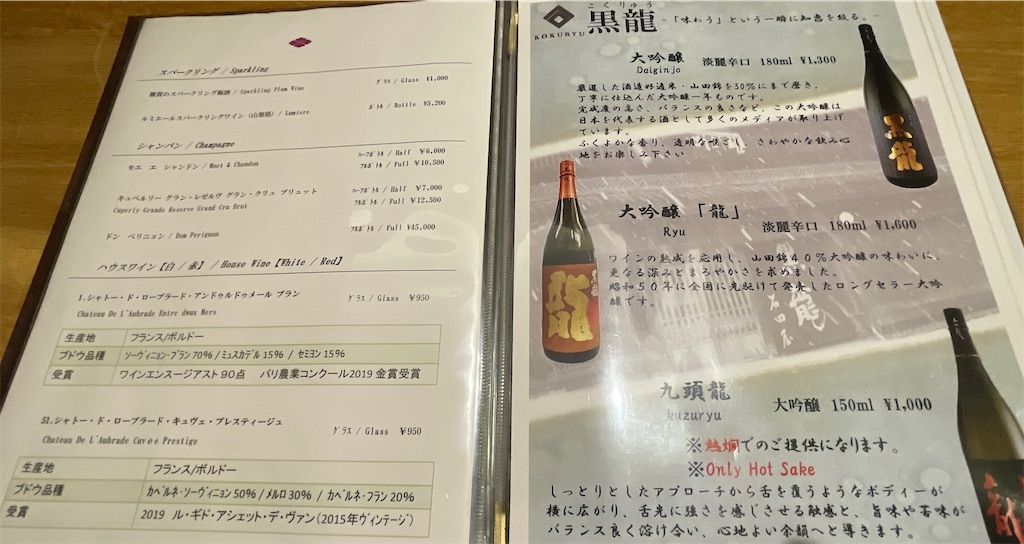 スパークリング / Sparkling
雑賀のスパークリング梅酒 / Sparkling Plum Wine
グラス / Glass ¥1,000
ルミエールスパークリングワイン (山梨県) / Lumiere
ボトル / Bottle ¥5,200
シャンパン / Champagne
モエ エ シャンドン / Moet & Chandon
ハーフボトル / Half ¥6,000
フルボトル / Full ¥10,500
キュペルリー グラン・レゼルヴ グラン・クリュ ブリュット
Cuperly Grande Reserve Grand Cru Brut
ハーフボトル / Half ¥7,000
フルボトル / Full ¥12,500
ドン ペリニョン / Dom Perignon
フルボトル / Full ¥45,000
ハウスワイン【白 / 赤】 / House Wine【White / Red】
1.シャトー・ド・ローブラード・アンドゥルドゥメール ブラン
Chateau De L'Aubrade Entre dwux Mers
グラス / Glass ¥950
生産地 フランス/ボルドー
ブドウ品種 ソーヴィニヨン・ブラン 70% / ミュスカデル 15% / セミヨン 15%
受賞 ワインエンスージアスト 90点 パリ農業コンクール2019 金賞受賞
51.シャトー・ド・ローブラード・キュヴェ・プレスティージュ
Chateau De L'Aubrade Cuvée Prestige
グラス / Glass ¥950
生産地 フランス/ボルドー
ブドウ品種 カベルネ・ソーヴィニヨン 50% / メルロ 30% / カベルネ・フラン 20%
受賞 2019 ル・ギド・アシェット・デ・ヴァン (2015年ヴィンテージ)
こくりゅう
KOKURYU 黒龍 -「味わう」という一瞬に知恵を絞る。-
大吟醸 淡麗辛口 180ml ¥1,300
Daiginjo
厳選した酒造好適米・山田錦を50%にまで磨き、
丁寧に仕込んだ大吟醸一年ものです。
完成度の高さ、バランスの良さなど、この大吟醸は
日本を代表する酒として多くのメディアが取り上げ
ています。
ふくよかな香り、透明な喉ごし、さわやかな飲み心
地をお楽しみ下さい
黒龍
大吟醸「龍」
Ryu
淡麗辛口 180ml ¥1,600
ワインの熟成を応用し、山田錦40%大吟醸の味わいに、
更なる深みとまろやかさを求めました。
昭和50年に全国に先駆けて発売したロングセラー大吟
醸です。
龍
九頭龍
kuzuryu
大吟醸 150ml ¥1,000
※熱燗でのご提供になります。
※Only Hot Sake
しっとりとしたアプローチから舌を覆うようなボディーが
横に広がり、舌先に強さを感じさせる触感と、旨味や苦味が
バランス良く溶け合い、心地よい余韻へと導きます。